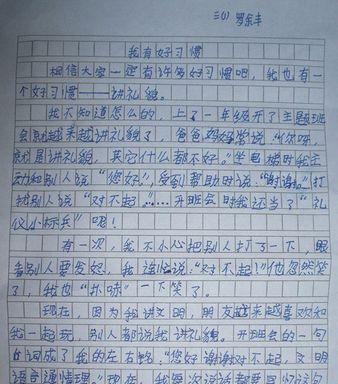 三(1) 罗余丰
我有好习惯
相信大家一定有许多好习惯吧，我也有一
个好习惯——讲礼貌。
我不知道怎么的，上了一年级开了主题班
会就越来越讲礼貌了，爸爸妈妈常说“你呀，
就是讲礼貌，其它什么都不好。”坐电梯时我主
动和别人说“您好”，受到帮助时说：“谢谢。”打
扰别人说“对不起”……开班会时我还当了“礼
仪小标兵”呢！
有一次，我不小心把别人打了一下，眼
看别人要发怒，我连忙说：“对不起！”他忽然笑
了，我也“扑哧”一下笑了。
现在，因为我讲文明，朋友越来越喜欢和
我一起玩，别人都说我讲礼貌。开班会的一句
台词成了我的左右铭，“您好谢谢对不起，文明
语言通情理。”现在，我每次说话都要回忆这句